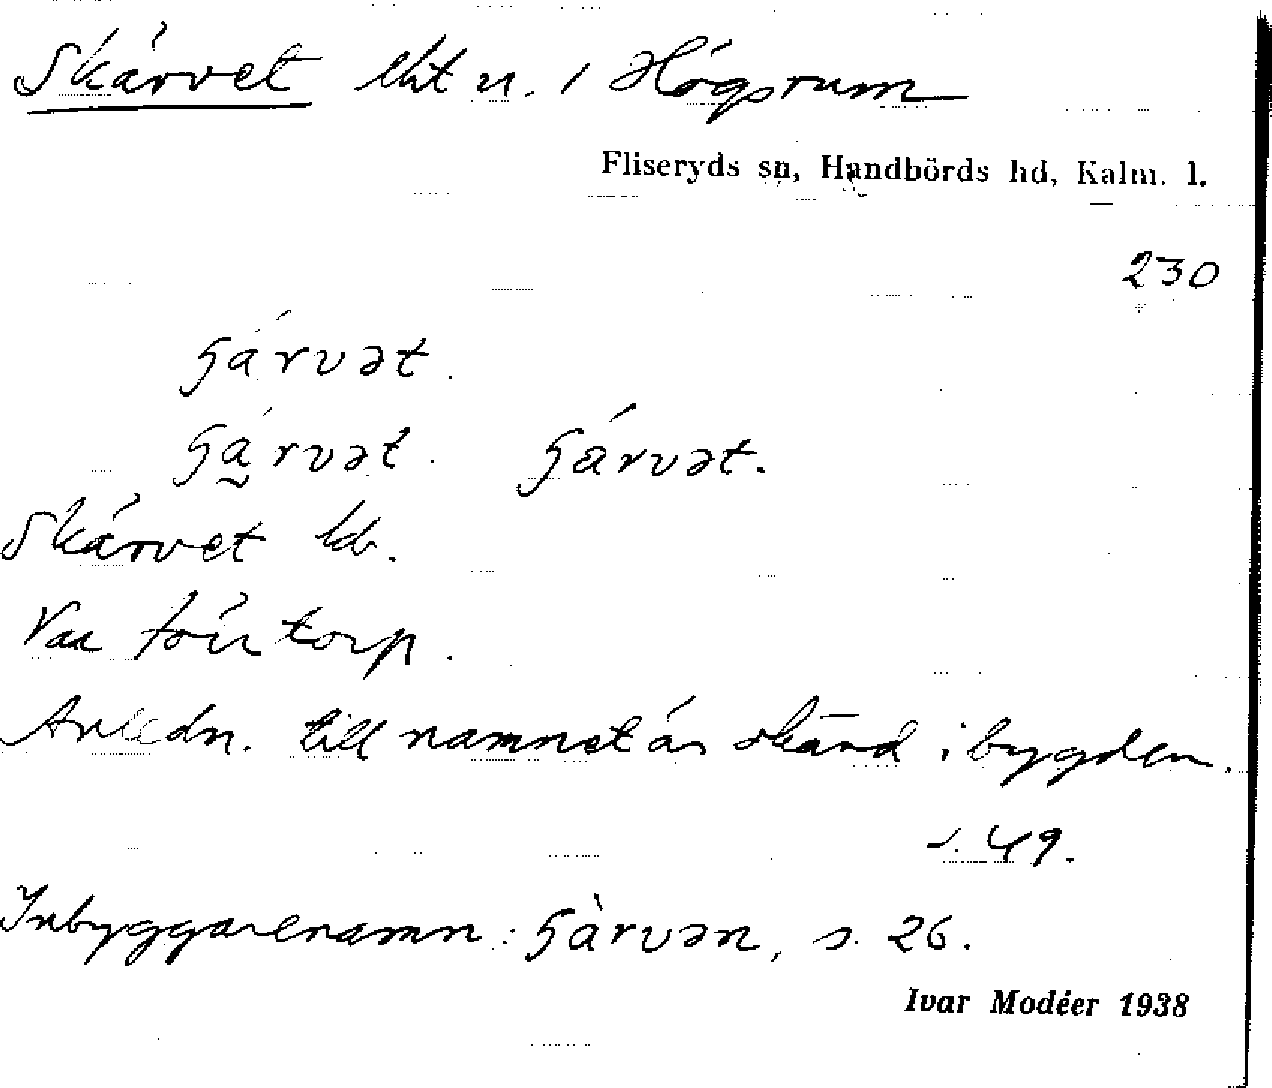 Skärvet lht u. / Högsrum
Fliseryds sn, Handbörds hd, Kalm. l.
230
ʃárvət.
ʃa̰rvət. ʃárvət.
Skärvet kb.
Var förr torp.
Anledn. till namnet är okänd i bygden.
s. 49.
Inbyggarenamn: ʃàrvən, s. 26.
Ivar Modéer 1938